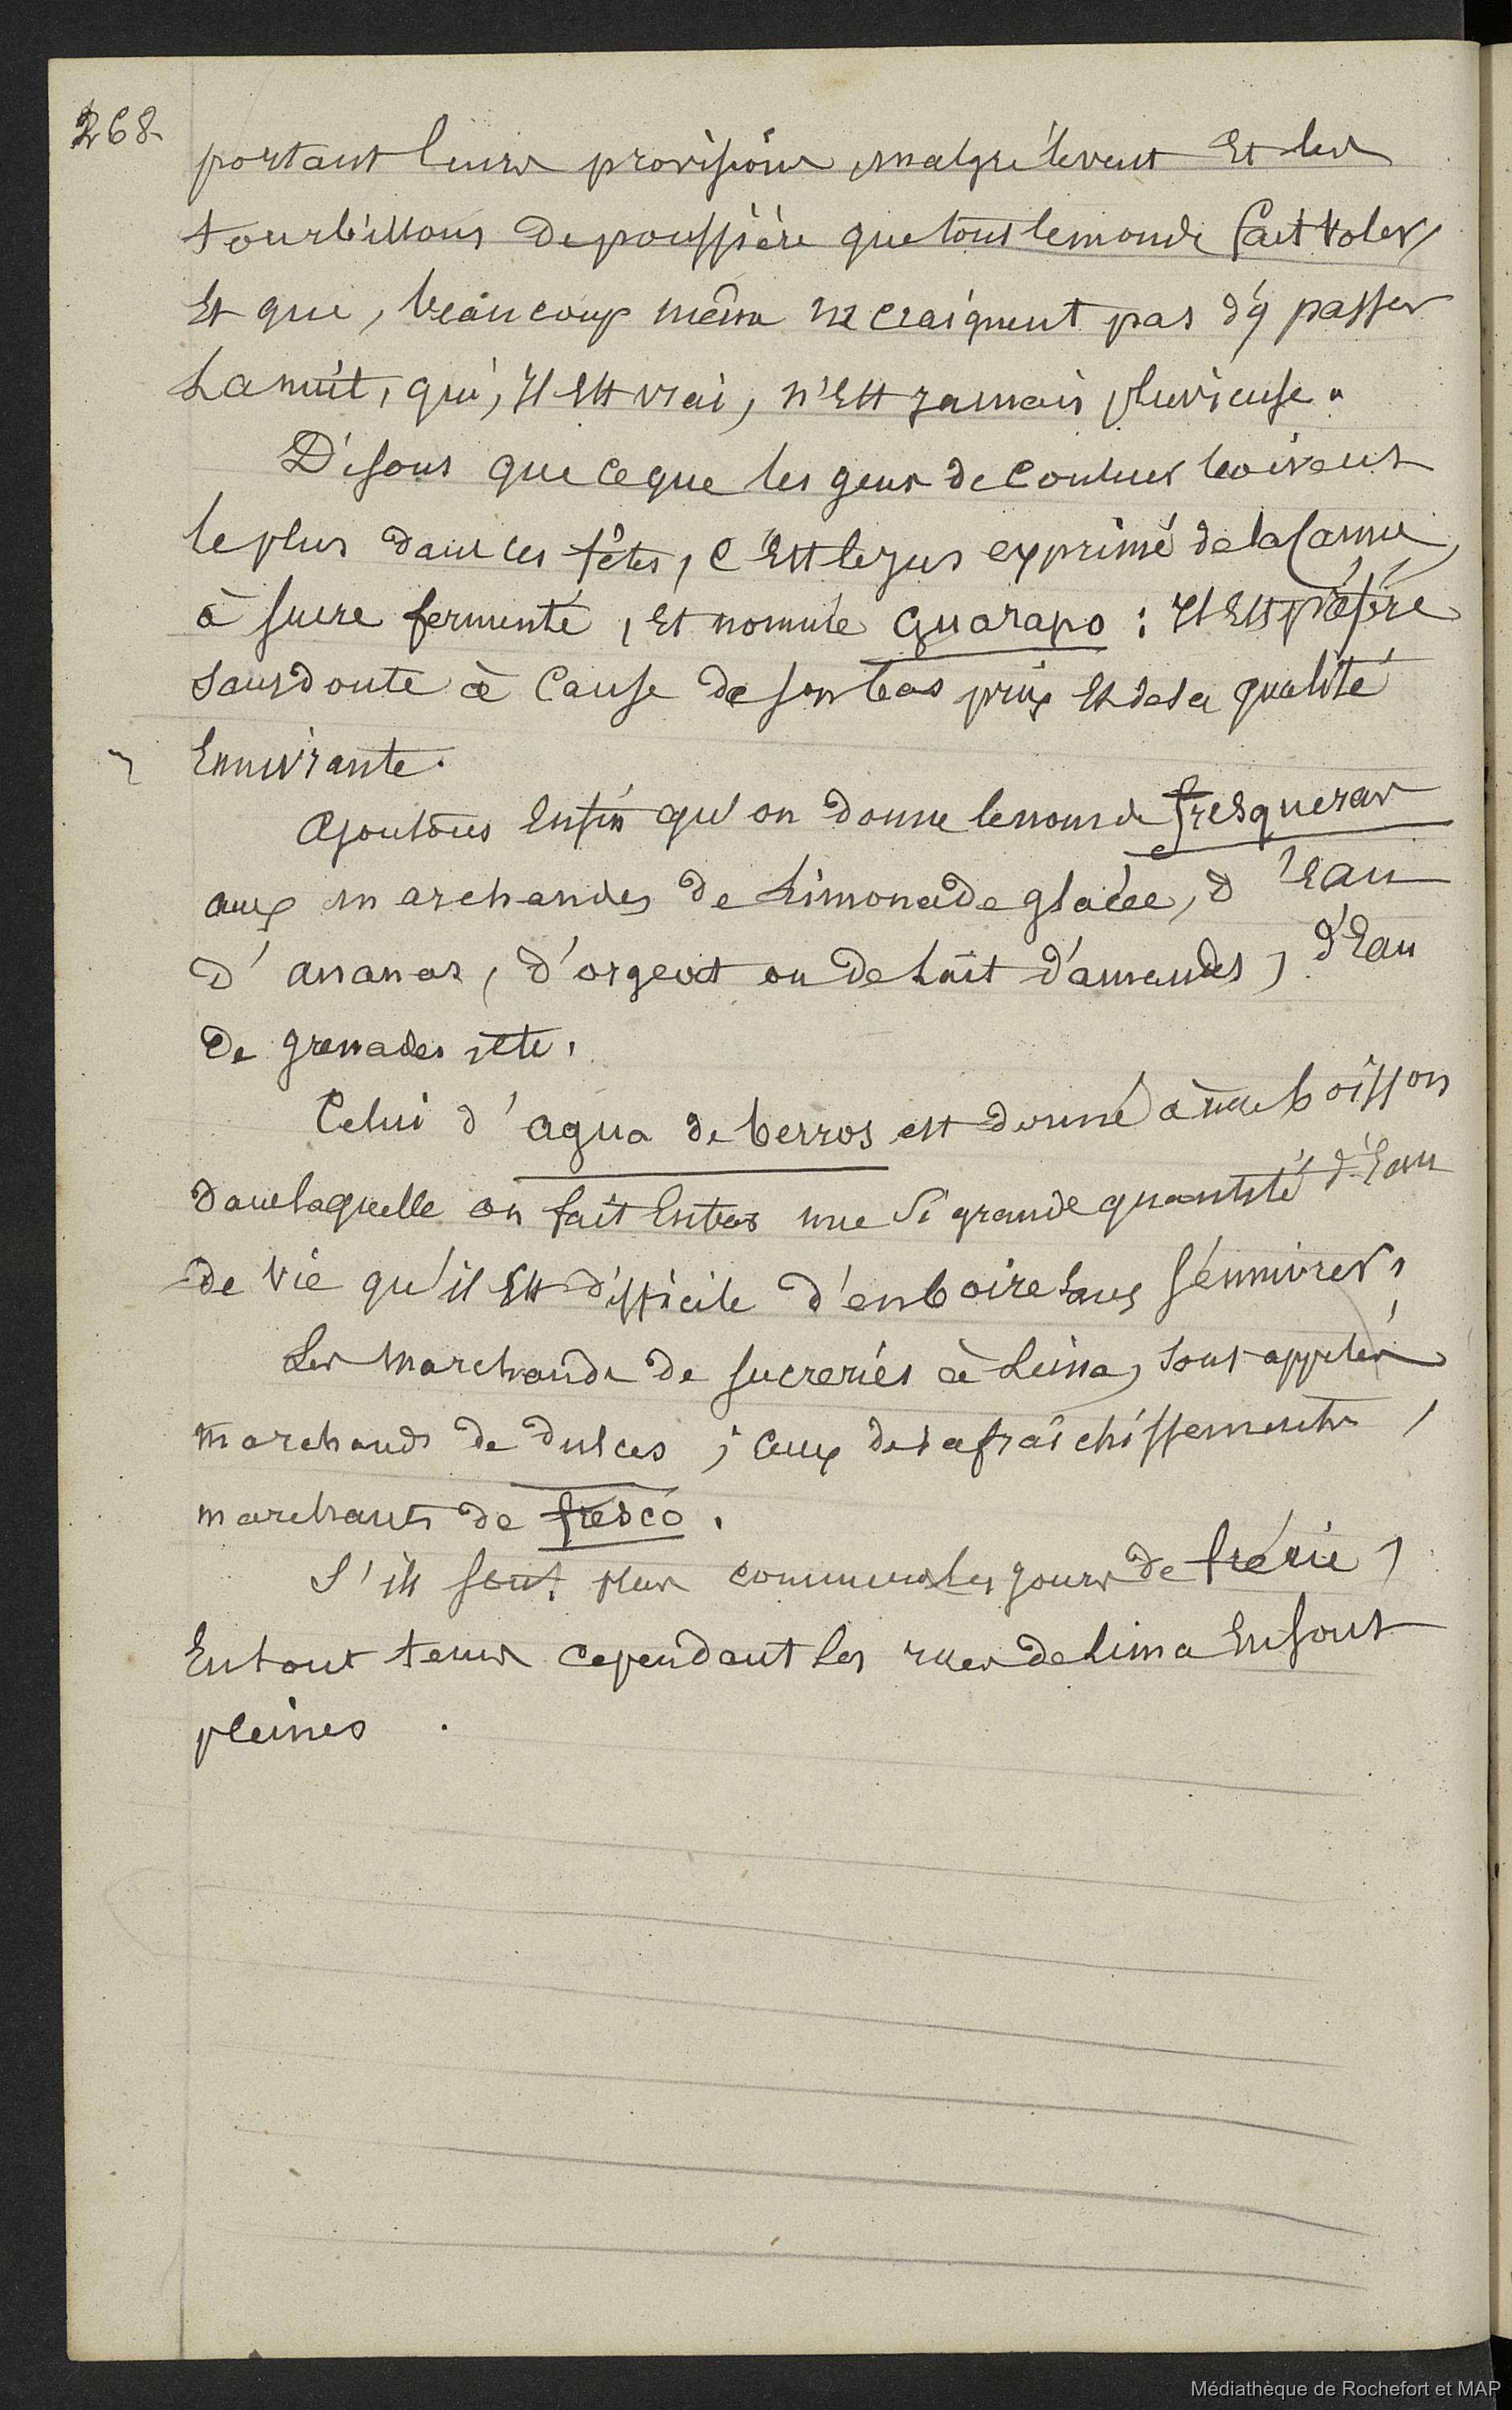 268.
portant leurs provisions, malgré le vent Et les
tourbillons de poussière que tout le monde fait voler,
Et que, beaucoup même ne craignent pas d'y passer
La nuit, qui, Il Est vrai, n'Est jamais pluvieuse.
Disons que ce que les gens de couleur boivent
le plus dans ces fêtes, c'Est le jus exprimé de la Canne
à sucre fermenté, Et nommé Guarapo : Il Est préféré
Sans doute à Cause de son bas prix Et de sa qualité
Ennivrante.
Ajoutons Enfin qu'on donne le nom de fresqueras
aux marchandes de Limonade glacée, d'Eau
d'ananas, d'orgeat ou de Lait d'amandes, d'Eau
de grenades, ete.
Celui d'agua de berros est donné à une boisson
dans laquelle on fait Entrer une Si grande quantité d'Eau
de vie qu'il Est difficile d'en boire Sans S'ennivrer,
Les marchands de sucreries à Lima, sont appelés
marchands de dulces ; ceux de rafraîchissements,
marchants de fresco.
S'ils sont plus communs les jours de frérie,
En tout tems cependant les rues de Lima En sont
pleines.
Médiathèque de Rochefort et MAP